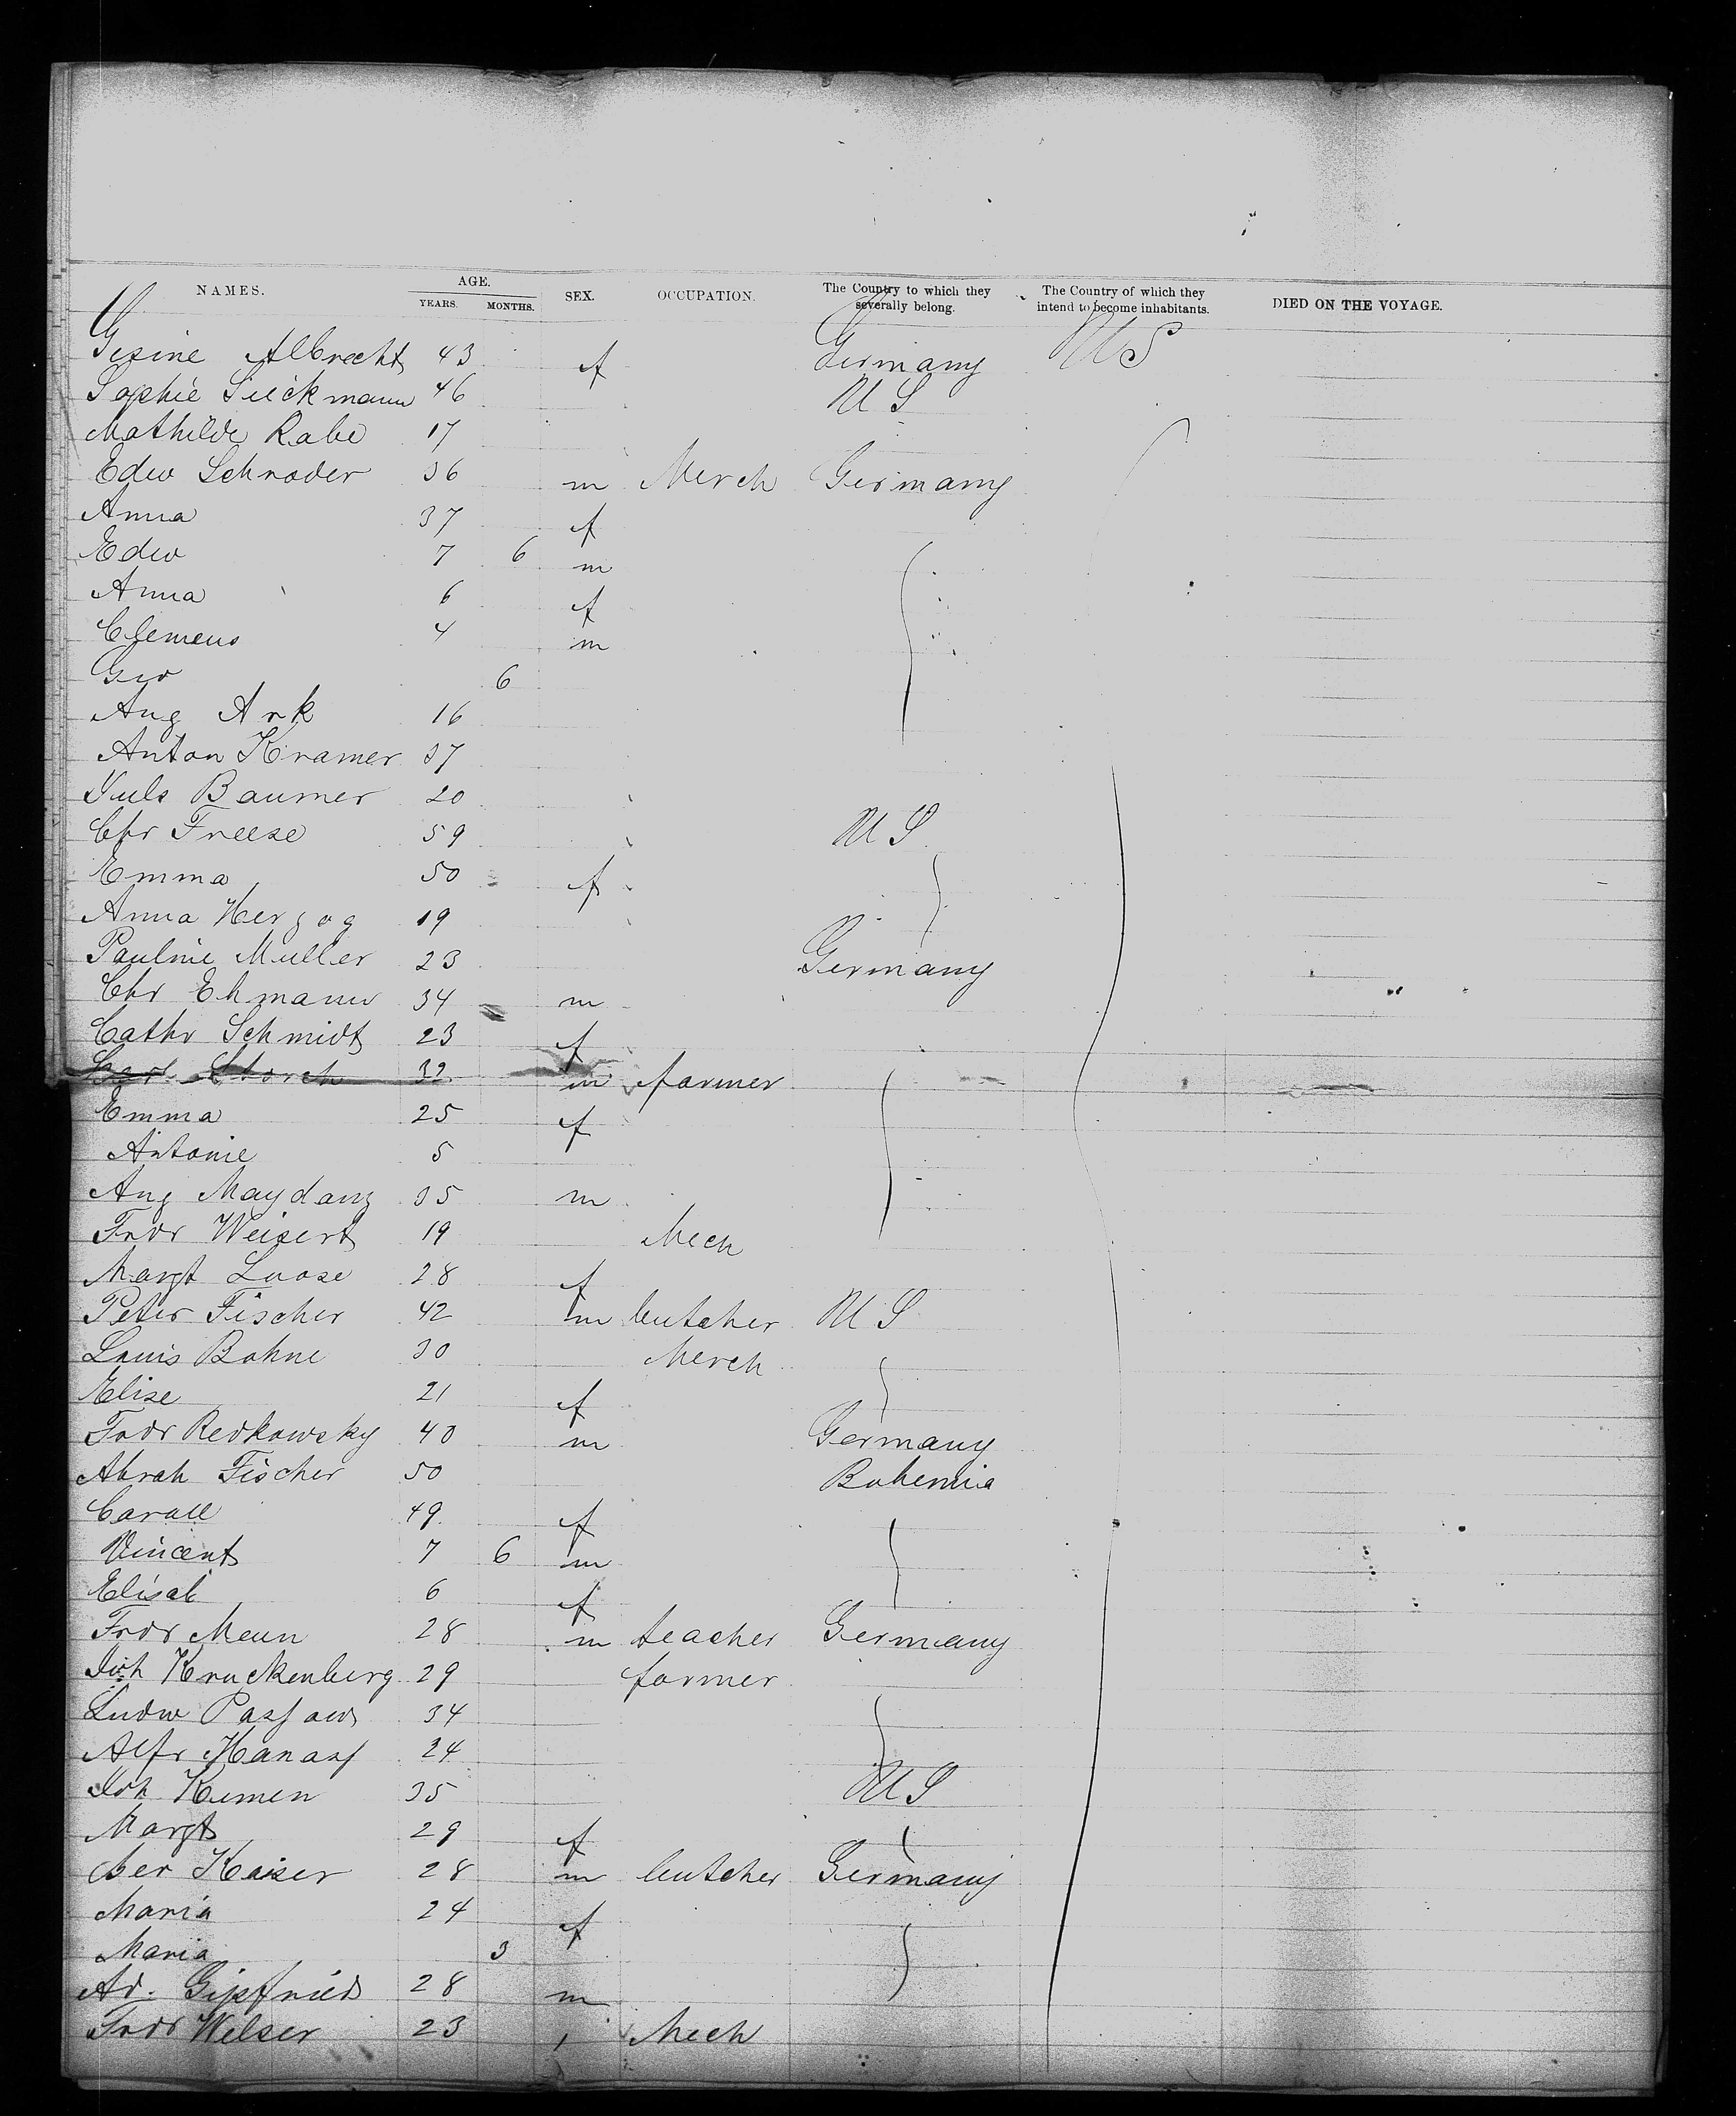 NAMES. AGE. YEARS. MONTHS. SEX. OCCUPATION. The Country to which they severally belong. The Country of which they intend to become inhabitants. DIED ON THE VOYAGE.
Gesine Albrecht 43 f Germany US
Sophie Sieckmann 46 US
Mathilde Rabe 17
Edw Schroder 36 m Merch Germany
Anna 37 f
Edw 7 6 m
Anna 6 f
Clemens 4 m
Geo 6
Aug Ark 16
Anton Kramer 37
Juls Baumer 20
Chr Freese 59 US
Emma 50 f
Anna Herzog 19
Pauline Muller 23 Germany
Chr Ehmann 34 m
Cathr Schmidt 23 f
Storch 32 m farmer
Emma 25 f
Antonie 5
Aug Maydanz 35 m
Fredr Weisert 19 Mech
Margt Loose 28 f
Peter Fischer 42 m butcher US
Louis Bohne 30 Merch
Elise 21 f
Fredr Redkowsky 40 m Germany
Abrah Fischer 50 Bohemia
Caroll 49 f
Vincent 7 6 m
Elisab 6 f
Fredr Menn 28 m teacher Germany
Joh Kruckenberg 29 farmer
Ludw Passow 34
Alfr Hanass 24
Joh Kumen 35 US
Margt 29 f
Kaiser 28 m butcher Germany
Maria 24 f
Maria 3
Ad. 28 m
Fredr Welser 23 Mech